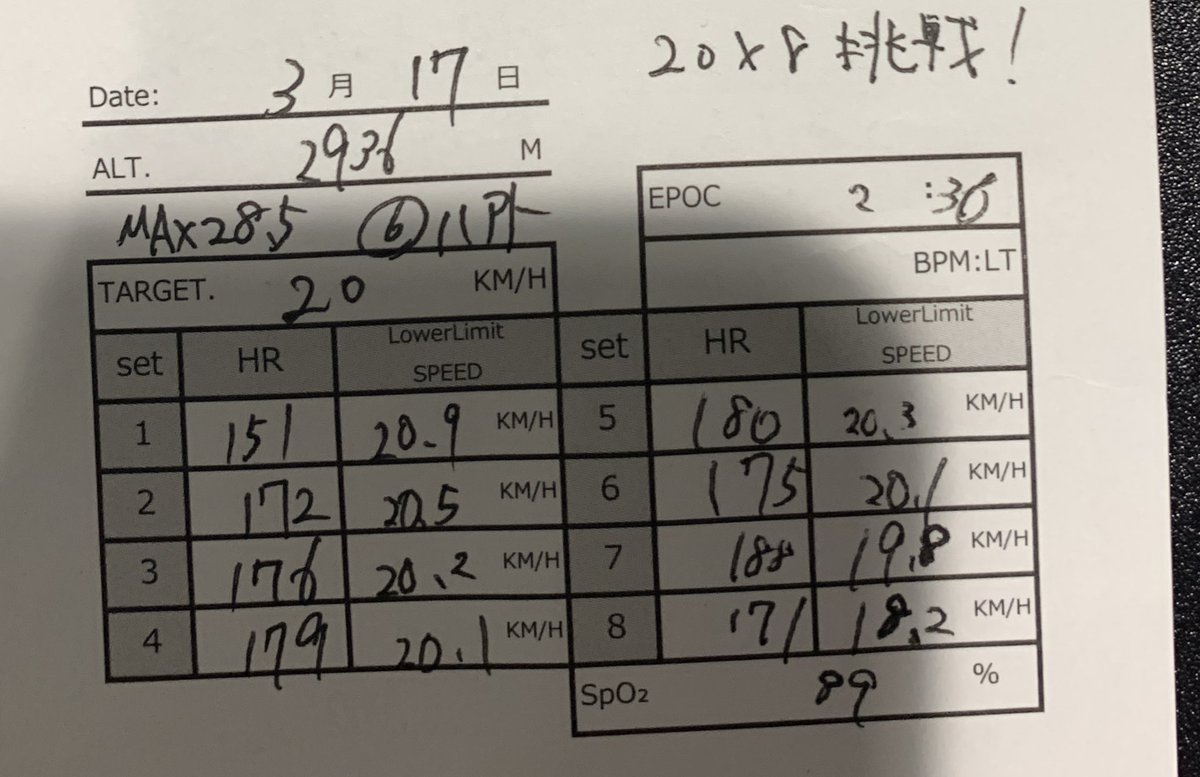 20×8 挑戦!
Date: 3月 17日
ALT. 2936 M
MAX28.5 ⑥パ外
TARGET. 20 KM/H
EPOC 2 :36
BPM:LT
set HR LowerLimit SPEED set HR LowerLimit SPEED
1 151 20.9 KM/H 5 180 20.3 KM/H
2 172 20.5 KM/H 6 175 20.1 KM/H
3 176 20.2 KM/H 7 188 19.8 KM/H
4 179 20.1 KM/H 8 171 18.2 KM/H
SpO2 89 %